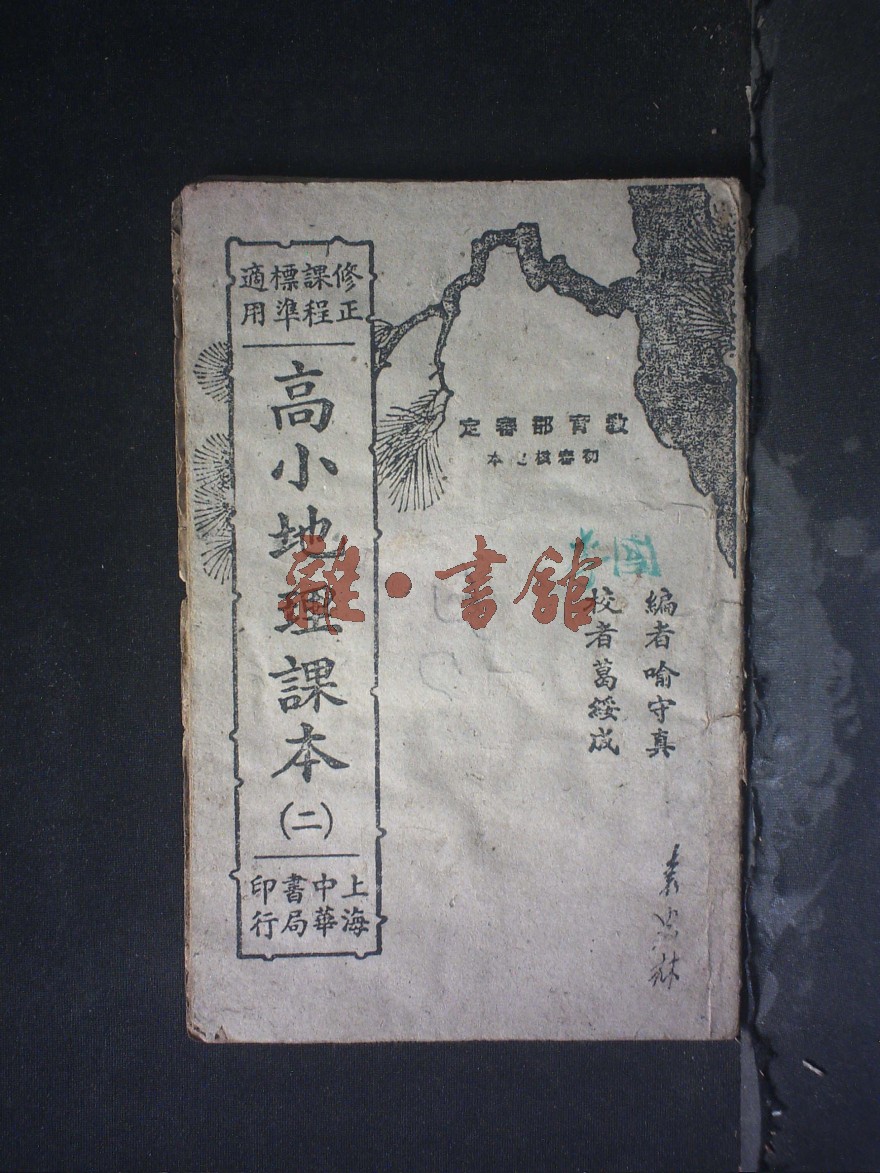 修正
課程
標準
適用
高小地理課本
(二)
上海
中華
書局
印行
教育部審定
初審核定本
編者喻守真
校者葛綏成
雜·書館